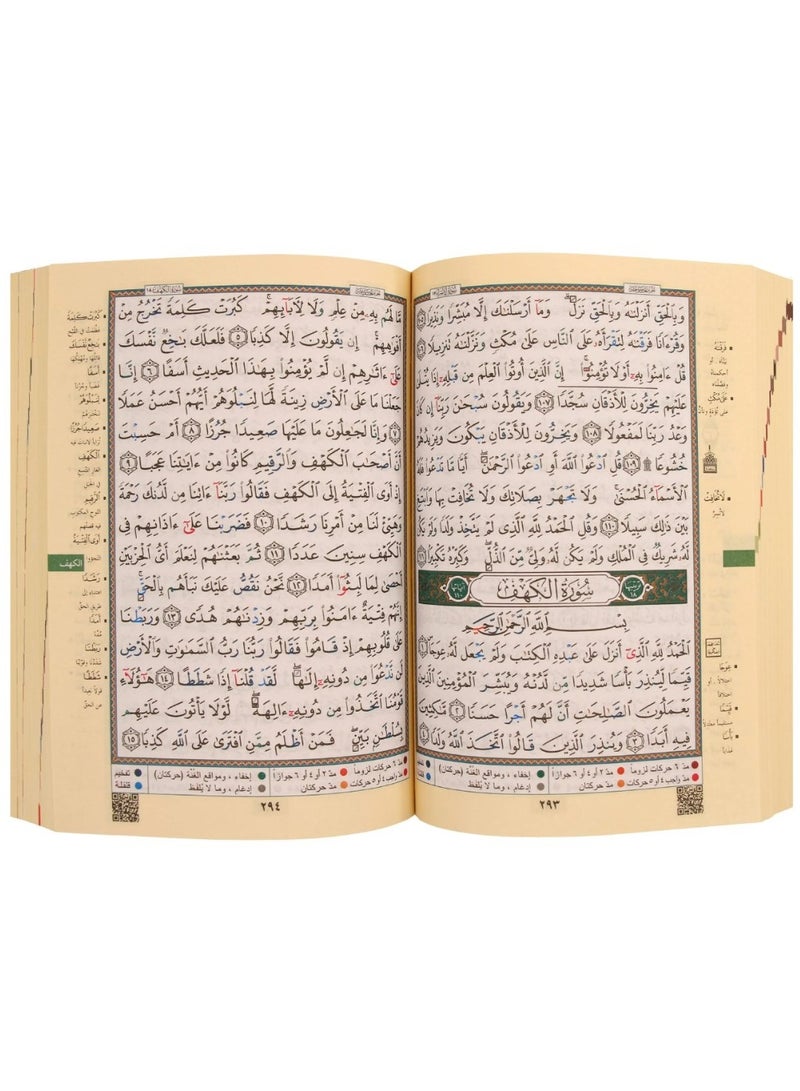 وَبِٱلْحَقِّ أَنزَلْنَٰهُ وَبِٱلْحَقِّ نَزَلَ ۗ وَمَآ أَرْسَلْنَٰكَ إِلَّا مُبَشِّرًا وَنَذِيرًا
وَقُرْءَانًا فَرَقْنَٰهُ لِتَقْرَأَهُۥ عَلَى ٱلنَّاسِ عَلَىٰ مُكْثٍ وَنَزَّلْنَٰهُ تَنزِيلًا
قُلْ ءَامِنُوا۟ بِهِۦٓ أَوْ لَا تُؤْمِنُوٓا۟ ۚ إِنَّ ٱلَّذِينَ أُوتُوا۟ ٱلْعِلْمَ مِن قَبْلِهِۦٓ إِذَا يُتْلَىٰ
عَلَيْهِمْ يَخِرُّونَ لِلْأَذْقَانِ سُجَّدًا ١٠٧ وَيَقُولُونَ سُبْحَٰنَ رَبِّنَآ إِن كَانَ
وَعْدُ رَبِّنَا لَمَفْعُولًا ١٠٨ وَيَخِرُّونَ لِلْأَذْقَانِ يَبْكُونَ وَيَزِيدُهُمْ
خُشُوعًا ١٠٩ قُلِ ٱدْعُوا۟ ٱللَّهَ أَوِ ٱدْعُوا۟ ٱلرَّحْمَٰنَ ۖ أَيًّا مَّا تَدْعُوا۟ فَلَهُ
ٱلْأَسْمَآءُ ٱلْحُسْنَىٰ ۚ وَلَا تَجْهَرْ بِصَلَاتِكَ وَلَا تُخَافِتْ بِهَا وَٱبْتَغِ
بَيْنَ ذَٰلِكَ سَبِيلًا ١١٠ وَقُلِ ٱلْحَمْدُ لِلَّهِ ٱلَّذِى لَمْ يَتَّخِذْ وَلَدًا وَلَمْ يَكُن
لَّهُۥ شَرِيكٌ فِى ٱلْمُلْكِ وَلَمْ يَكُن لَّهُۥ وَلِىٌّ مِّنَ ٱلذُّلِّ ۖ وَكَبِّرْهُ تَكْبِيرًۢا
سُورَةُ ٱلْكَهْفِ
بِسْمِ ٱللَّهِ ٱلرَّحْمَٰنِ ٱلرَّحِيمِ
ٱلْحَمْدُ لِلَّهِ ٱلَّذِىٓ أَنزَلَ عَلَىٰ عَبْدِهِ ٱلْكِتَٰبَ وَلَمْ يَجْعَل لَّهُۥ عِوَجَا ۜ ١
قَيِّمًا لِّيُنذِرَ بَأْسًا شَدِيدًا مِّن لَّدُنْهُ وَيُبَشِّرَ ٱلْمُؤْمِنِينَ ٱلَّذِينَ
يَعْمَلُونَ ٱلصَّٰلِحَٰتِ أَنَّ لَهُمْ أَجْرًا حَسَنًا ٢ مَّٰكِثِينَ
فِيهِ أَبَدًا ٣ وَيُنذِرَ ٱلَّذِينَ قَالُوا۟ ٱتَّخَذَ ٱللَّهُ وَلَدًا ٤
مدّ ٦ حركات لزوماً مدّ ٢ أو ٤ أو ٦ جوازاً إخفاء ، ومواقع الغُنّة (حركتان)
مدّ واجب ٤ أو ٥ حركات مدّ حركتان إدغام ، وما لا يُلفظ
٢٩٣
فَرَقْنَٰهُ
لَا تُخَافِتْ
عِوَجًا
قَيِّمًا
بَأْسًا
عذابًا
مَّا لَهُم بِهِۦ مِنْ عِلْمٍ وَلَا لِـَٔابَآئِهِمْ ۚ كَبُرَتْ كَلِمَةً تَخْرُجُ مِنْ
أَفْوَٰهِهِمْ ۚ إِن يَقُولُونَ إِلَّا كَذِبًا ٥ فَلَعَلَّكَ بَٰخِعٌ نَّفْسَكَ
عَلَىٰٓ ءَاثَٰرِهِمْ إِن لَّمْ يُؤْمِنُوا۟ بِهَٰذَا ٱلْحَدِيثِ أَسَفًا ٦ إِنَّا
جَعَلْنَا مَا عَلَى ٱلْأَرْضِ زِينَةً لَّهَا لِنَبْلُوَهُمْ أَيُّهُمْ أَحْسَنُ عَمَلًا
٧ وَإِنَّا لَجَٰعِلُونَ مَا عَلَيْهَا صَعِيدًا جُرُزًا ٨ أَمْ حَسِبْتَ
أَنَّ أَصْحَٰبَ ٱلْكَهْفِ وَٱلرَّقِيمِ كَانُوا۟ مِنْ ءَايَٰتِنَا عَجَبًا ٩
إِذْ أَوَى ٱلْفِتْيَةُ إِلَى ٱلْكَهْفِ فَقَالُوا۟ رَبَّنَآ ءَاتِنَا مِن لَّدُنكَ رَحْمَةً
وَهَيِّئْ لَنَا مِنْ أَمْرِنَا رَشَدًا ١٠ فَضَرَبْنَا عَلَىٰٓ ءَاذَانِهِمْ فِى
ٱلْكَهْفِ سِنِينَ عَدَدًا ١١ ثُمَّ بَعَثْنَٰهُمْ لِنَعْلَمَ أَىُّ ٱلْحِزْبَيْنِ
أَحْصَىٰ لِمَا لَبِثُوٓا۟ أَمَدًا ١٢ نَّحْنُ نَقُصُّ عَلَيْكَ نَبَأَهُم بِٱلْحَقِّ ۚ
إِنَّهُمْ فِتْيَةٌ ءَامَنُوا۟ بِرَبِّهِمْ وَزِدْنَٰهُمْ هُدًى ١٣ وَرَبَطْنَا
عَلَىٰ قُلُوبِهِمْ إِذْ قَامُوا۟ فَقَالُوا۟ رَبُّنَا رَبُّ ٱلسَّمَٰوَٰتِ وَٱلْأَرْضِ
لَن نَّدْعُوَا۟ مِن دُونِهِۦٓ إِلَٰهًا ۖ لَّقَدْ قُلْنَآ إِذًا شَطَطًا ١٤ هَٰٓؤُلَآءِ
قَوْمُنَا ٱتَّخَذُوا۟ مِن دُونِهِۦٓ ءَالِهَةً ۖ لَّوْلَا يَأْتُونَ عَلَيْهِم
بِسُلْطَٰنٍۭ بَيِّنٍ ۖ فَمَنْ أَظْلَمُ مِمَّنِ ٱفْتَرَىٰ عَلَى ٱللَّهِ كَذِبًا ١٥
مدّ ٢ أو ٤ أو ٦ جوازاً إخفاء ، ومواقع الغُنّة (حركتان) تفخيم
مدّ حركتان إدغام ، وما لا يُلفظ قلقلة
٢٩٤
كَبُرَتْ كَلِمَةً
بَٰخِعٌ نَّفْسَكَ
أَسَفًا
لِنَبْلُوَهُمْ
صَعِيدًا جُرُزًا
ٱلْكَهْفِ
ٱلرَّقِيمِ
أَوَى ٱلْفِتْيَةُ
الكهف
رَشَدًا
أَمَدًا
رَبَطْنَا
شَطَطًا